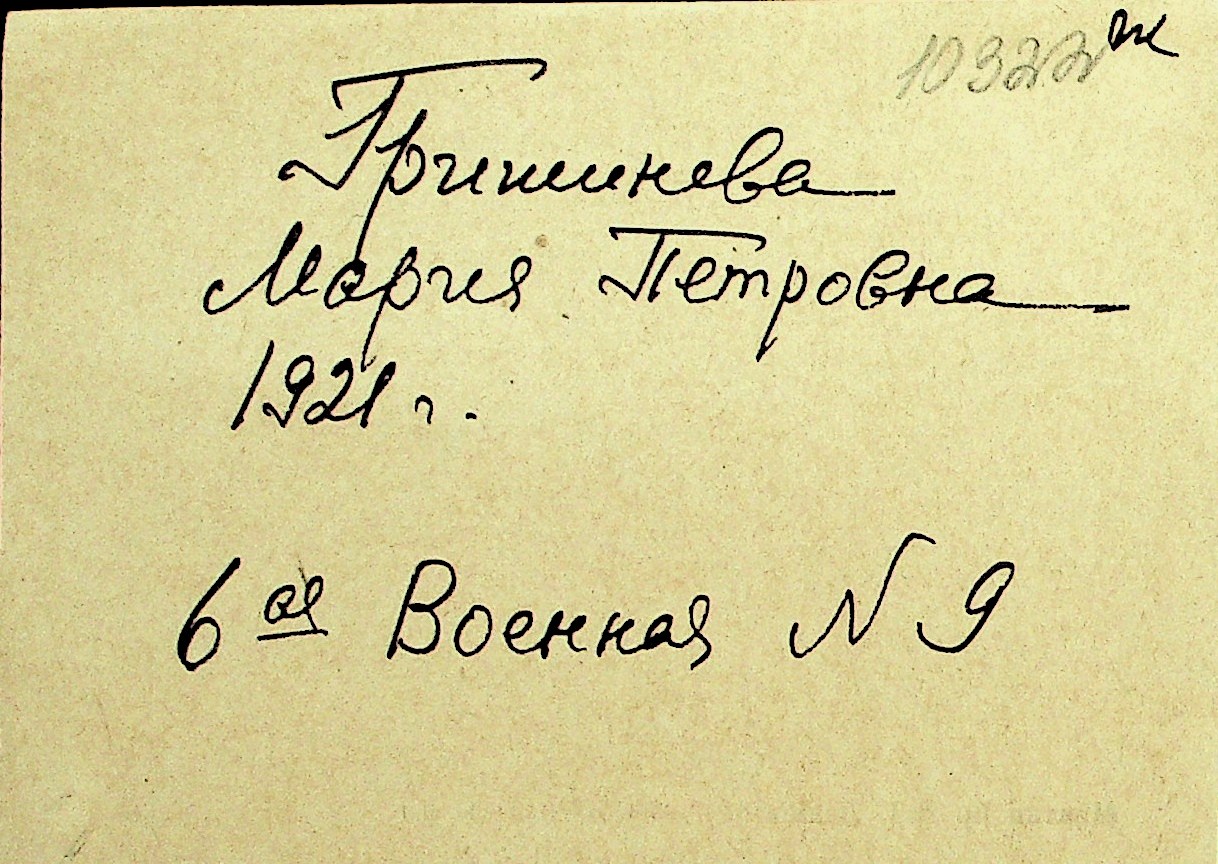 10322 ж
Гришинева
Мария Петровна
1921 г.
6 ая Военная N 9